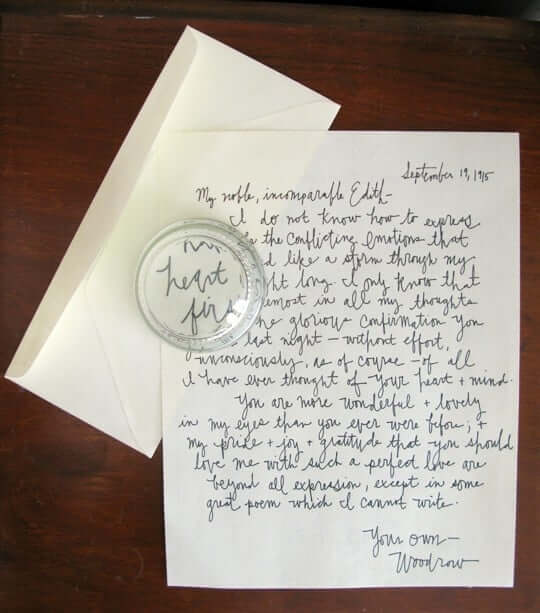 September 19, 1915
My noble, incomparable Edith—
I do not know how to express
the conflicting emotions that
like a storm through my
long. I only know that
in all my thoughts
glorious confirmation you
last night – without effort,
unconsciously, as of course – of all
I have ever thought of your heart + mind.
You are more wonderful + lovely
in my eyes than you ever were before; +
my pride + joy + gratitude that you should
love me with such a perfect love are
beyond all expression, except in some
great poem which I cannot write.
Your own—
Woodrow
heart